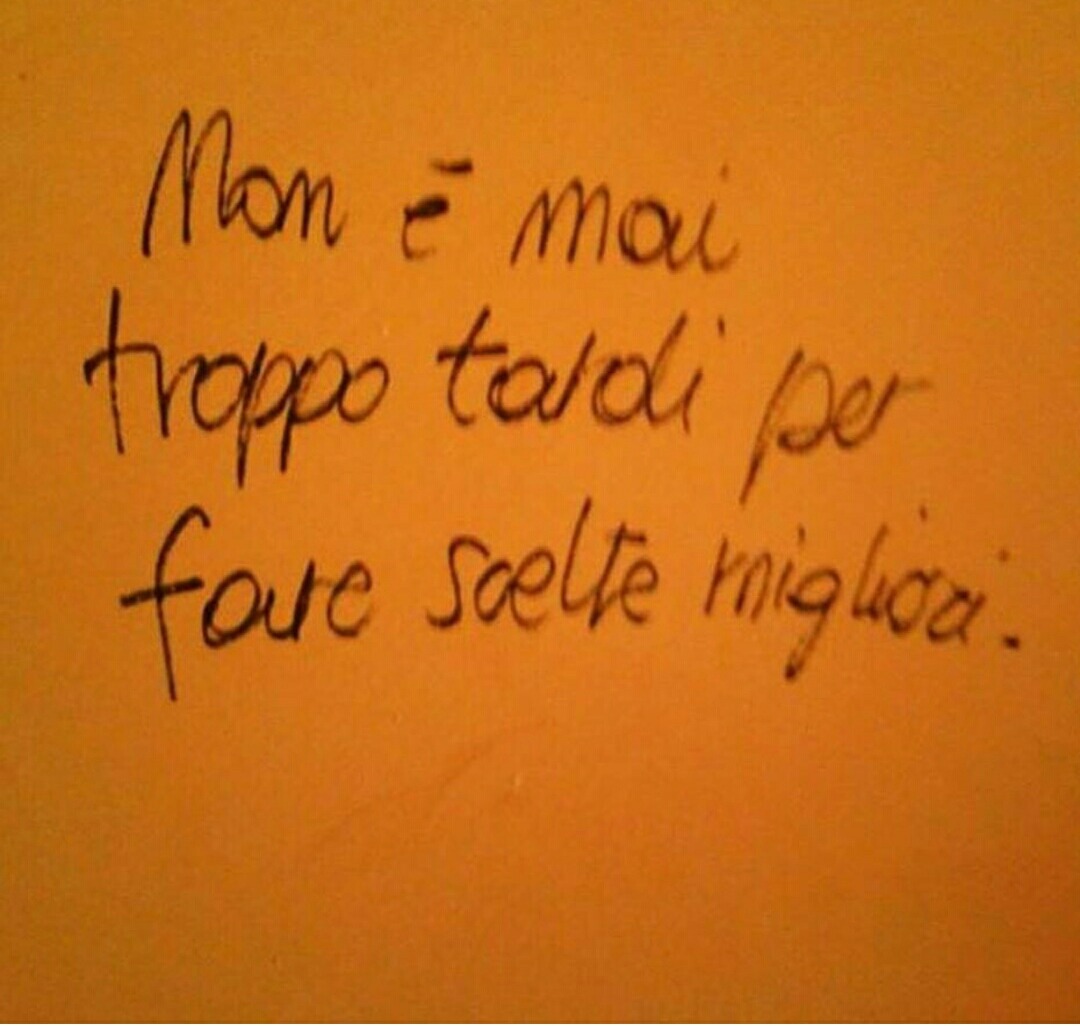 Non è mai
troppo tardi per
fare scelte migliori.